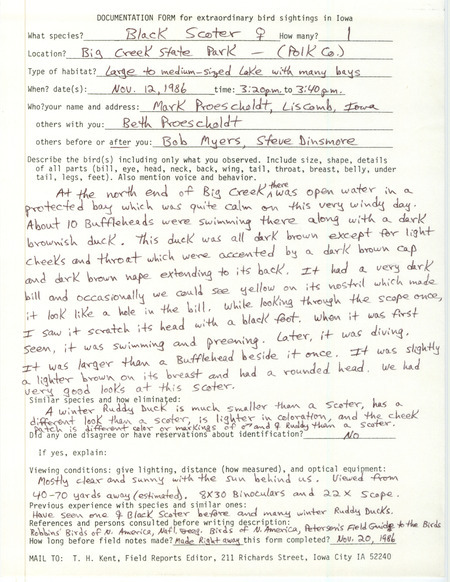 DOCUMENTATION FORM for extraordinary bird sightings in Iowa
What species? Black Scoter ♀ How many? 1
Location? Big Creek State Park - (Polk Co.)
Type of habitat? Large to medium-sized Lake with many bays
When? date(s): Nov. 12, 1986 time: 3:20pm. to 3:40pm.
Who?your name and address: Mark Proescholdt, Liscomb, Iowa
others with you: Beth Proescholdt
others before or after you: Bob Myers, Steve Dinsmore
Describe the bird(s) including only what you observed. Include size, shape, details
of all parts (bill, eye, head, neck, back, wing, tail, throat, breast, belly, under
tail, legs, feet). Also mention voice and behavior.
At the north end of Big Creek there was open water in a
protected bay which was quite calm on this very windy day.
About 10 Buffleheads were swimming there along with a dark
brownish duck. This duck was all dark brown except for light
cheeks and throat which were accented by a dark brown cap
and dark brown nape extending to its back. It had a very dark
bill and occasionally we could see yellow on its nostril which made
it look like a hole in the bill. While looking through the scope once,
I saw it scratch its head with a black foot. When it was first
seen, it was swimming and preening. Later, it was diving.
It was larger than a Bufflehead beside it once. It was slightly
a lighter brown on its breast and had a rounded head. We had
very good looks at this scoter.
Similar species and how eliminated:
A winter Ruddy Duck is much smaller than a Scoter, has a
different look than a scoter, is lighter in coloration, and the cheek
patch is different color or markings of ♂ and ♀ Ruddy than a Scoter.
Did any one disagree or have reservations about identification? No
If yes, explain:
Viewing conditions: give lighting, distance (how measured), and optical equipment:
Mostly clear and sunny with the sun behind us. Viewed from
40-70 yards away (estimated). 8X30 Binoculars and 22X Scope.
Previous experience with species and similar ones:
Have seen one ♀ Black Scoter before and many winter Ruddy Ducks.
References and persons consulted before writing description:
Robbins' Birds of N. America, Natl. Geog. Birds of N. America, Peterson's Field Guide to the Birds
How long before field notes made? Made Right away this form completed? Nov. 20, 1986
MAIL TO: T. H. Kent, Field Reports Editor, 211 Richards Street, Iowa City IA 52240